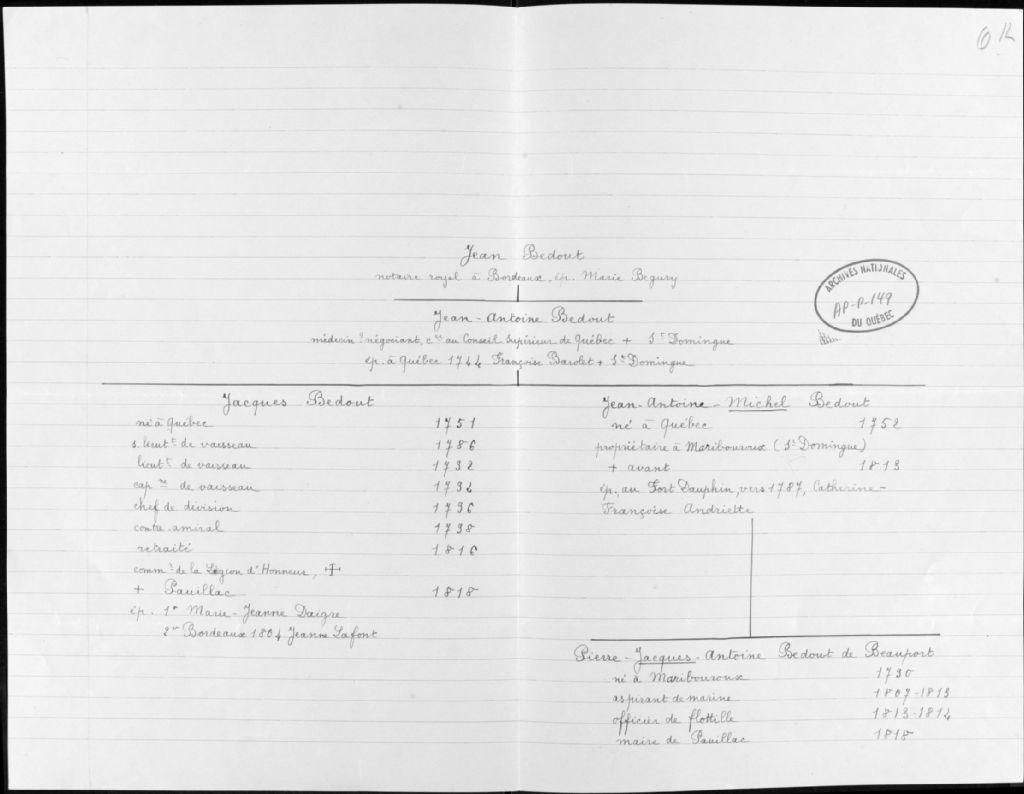 OK
Jean Bedout
notaire royal à Bordeaux, ép. Marie Begury
ARCHIVES NATIONALES
AP-P-149
DU QUÉBEC
Jean-Antoine Bedout
médecin négociant, c.er au Conseil Supérieur de Québec + St Domingue
ép. à Québec 1744 Françoise Barolet + St Domingue
Jacques Bedout
né à Québec 1751
s. lieutt de vaisseau 1786
lieutt de vaisseau 1792
cap.ne de vaisseau 1794
chef de division 1796
contre-amiral 1798
retraité 1816
comm.r de la Légion d'Honneur, ☩
+ Pauillac 1818
ép. 1º Marie-Jeanne Daigre
2º Bordeaux 1804 Jeanne Lafont
Jean-Antoine-Michel Bedout
né à Québec 1752
propriétaire à Maribouroux (St Domingue)
+ avant 1813
ép. au Fort Dauphin, vers 1787, Catherine-
Françoise Andriette
Pierre-Jacques-Antoine Bedout de Beauport
né à Maribouroux 1790
aspirant de marine 1807-1813
officier de flottille 1813-1814
maire de Pauillac 1818